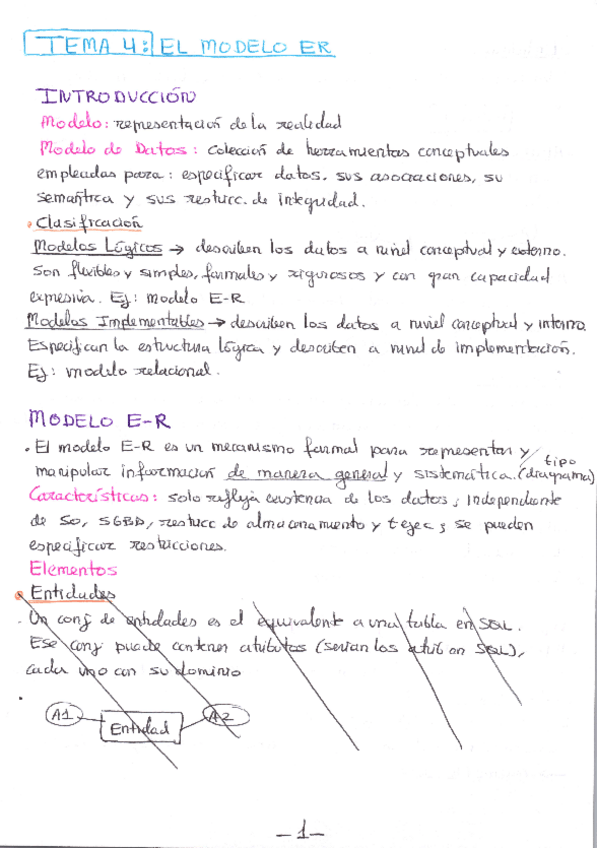 TEMA 4: EL MODELO ER
INTRODUCCIÓN
Modelo: representación de la realidad
Modelo de Datos: Colección de herramientas conceptuales
empleadas para: especificar datos, sus asociaciones, su
semántica y sus restricc. de integridad.
Clasificación
Modelos Lógicos → describen los datos a nivel conceptual y externo.
Son flexibles y simples, formales y rigurosos y con gran capacidad
expresiva. Ej: modelo E-R
Modelos Implementables → describen los datos a nivel conceptual y interno.
Especifican la estructura lógica y describen a nivel de implementación.
Ej: modelo relacional.
MODELO E-R
• El modelo E-R es un mecanismo formal para representar y
manipular información de manera general y sistemática. (tipo diagrama)
Características: solo refleja existencia de los datos; independiente
de SO, SGBD, restricc de almacenamiento y t ejec; se pueden
especificar restricciones.
Elementos
Entidades
. Un conj de entidades es el equivalente a una tabla en SQL.
Ese conj puede contener atributos (serian los atrib en SQL),
cada uno con su dominio
A1 Entidad A2
-1-